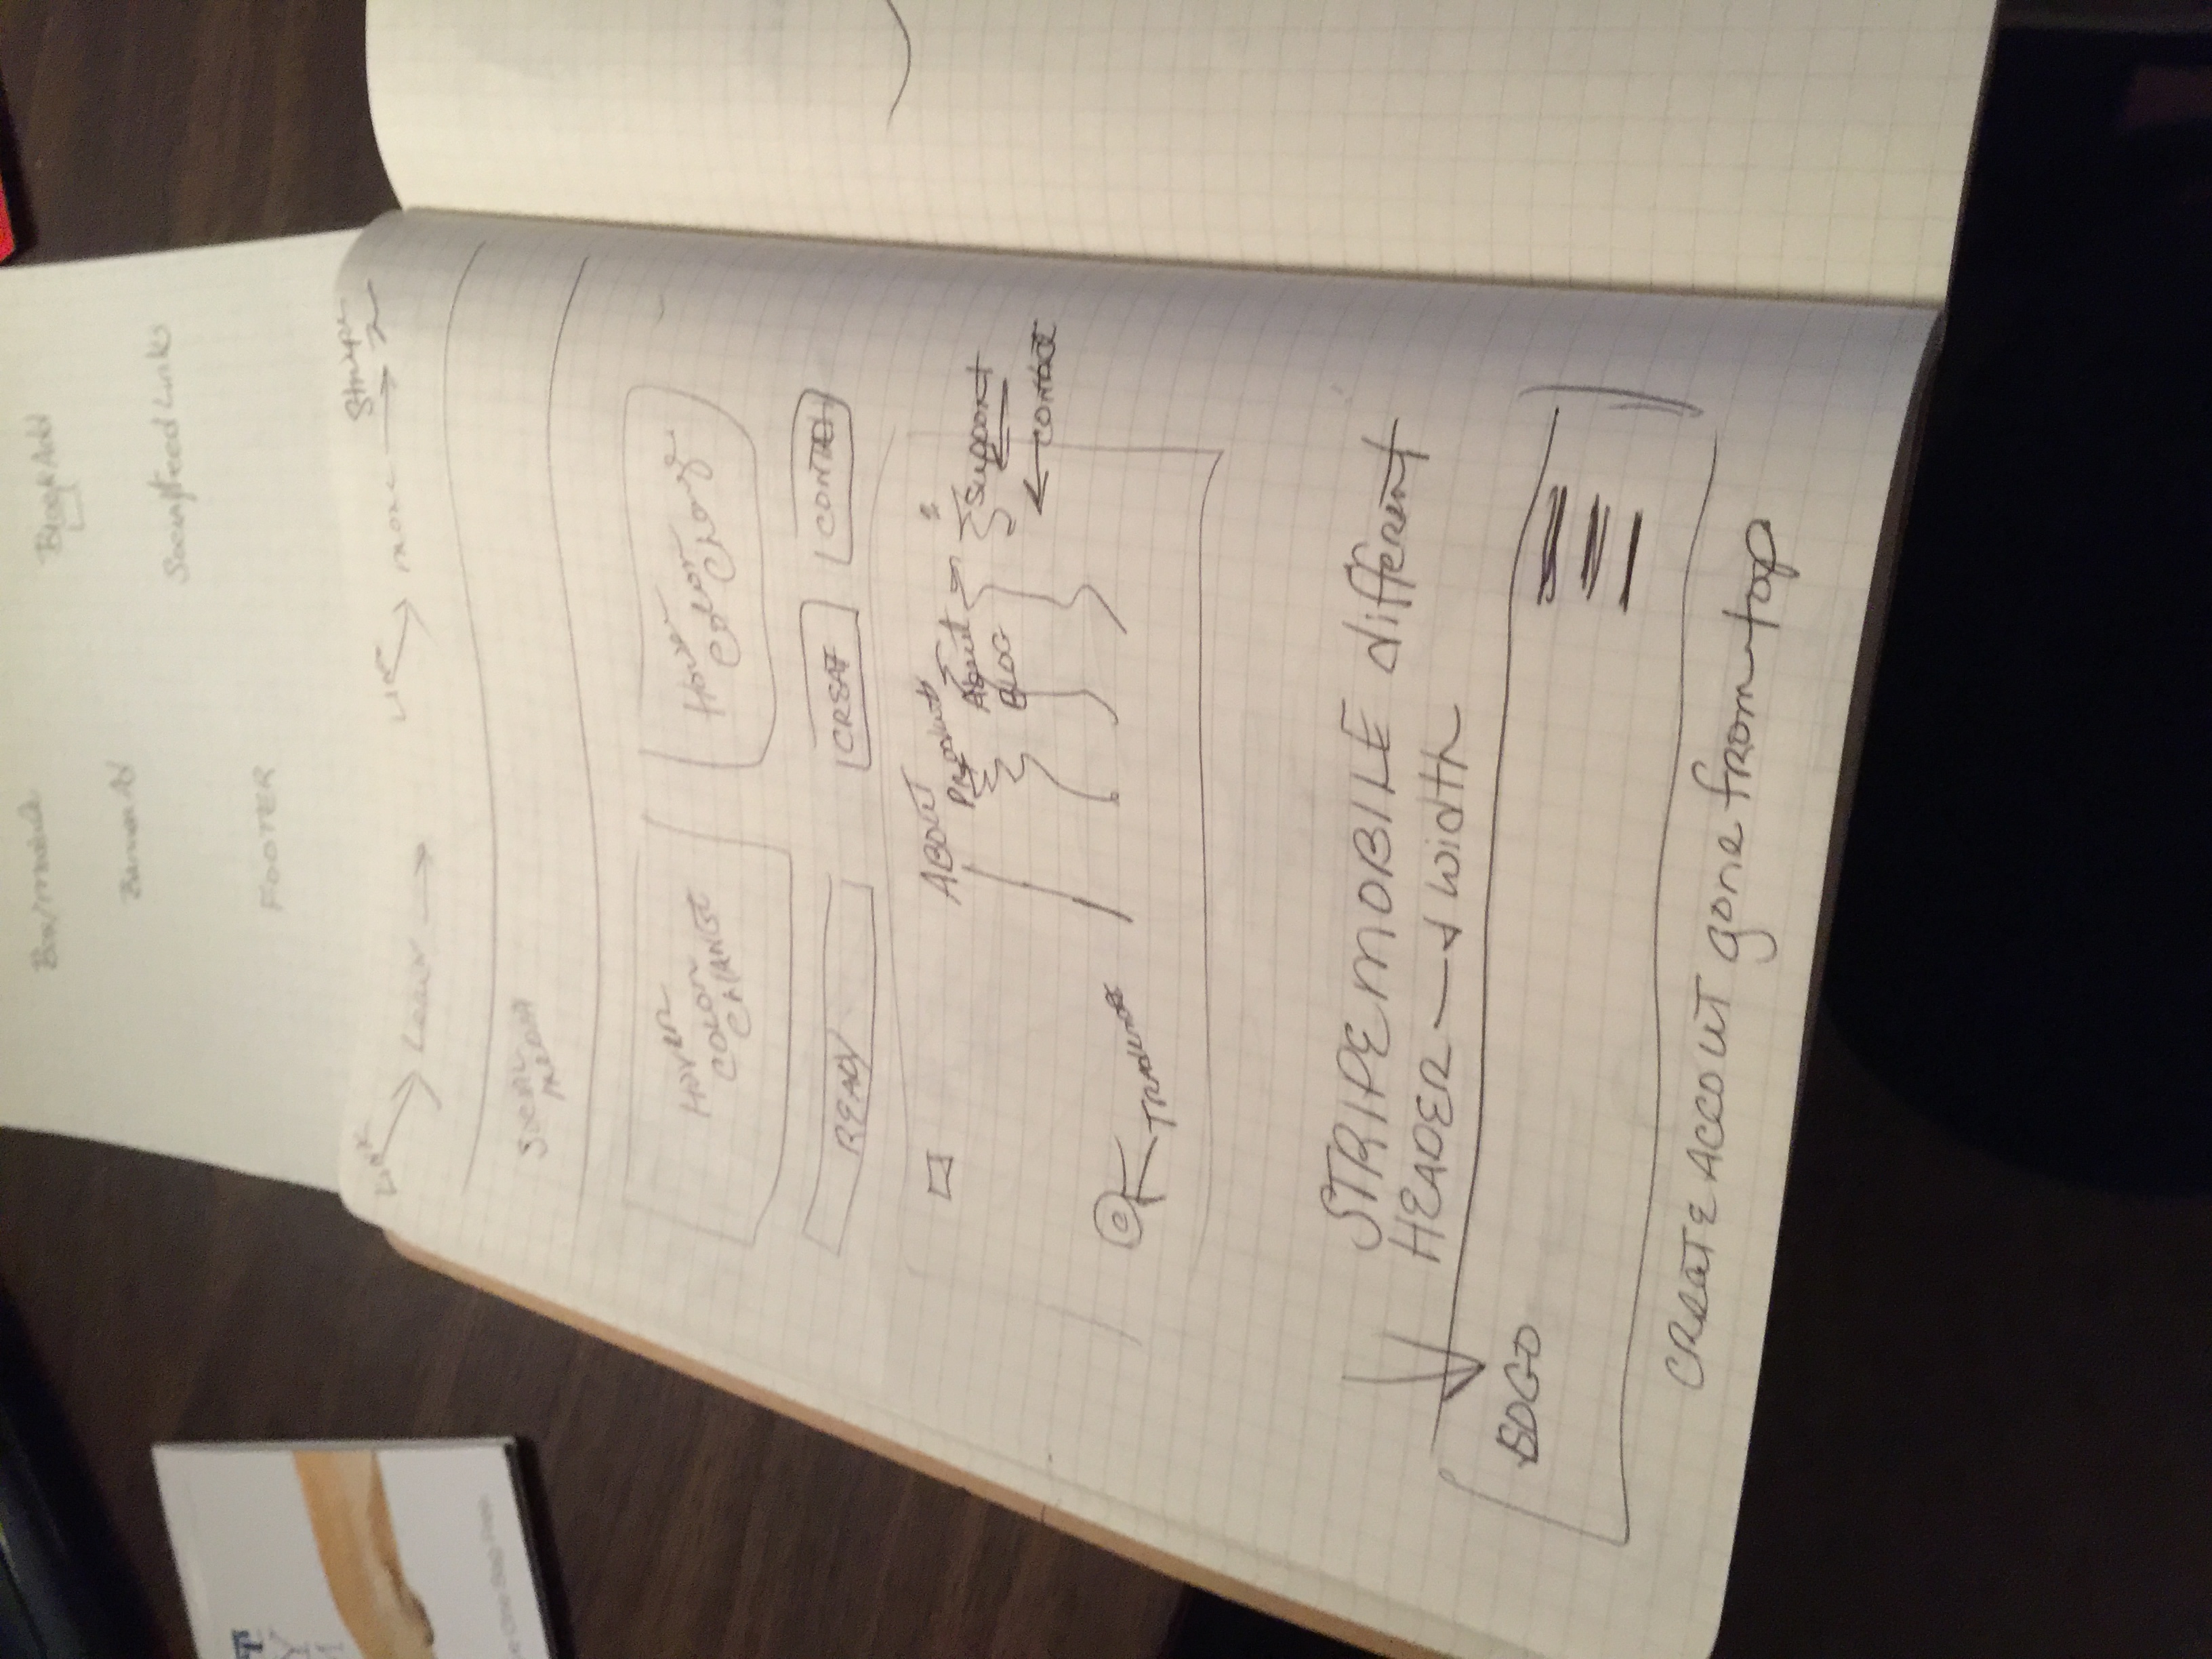 Box/module
Block Add
Banner Ad
Social/Feed Links
FOOTER
LINK
LEARN
LINK
MORE
Stripe
SOCIAL
MEDIA
HOVER
COLOR
CHANGE
Hover
Color
Change
READY
CREAT
ABOUT
Products
About
BLOG
Support
Contact
STRIPE MOBILE different
HEADER width
LOGO
CREATE ACCOUT gone from top
One Bag Free